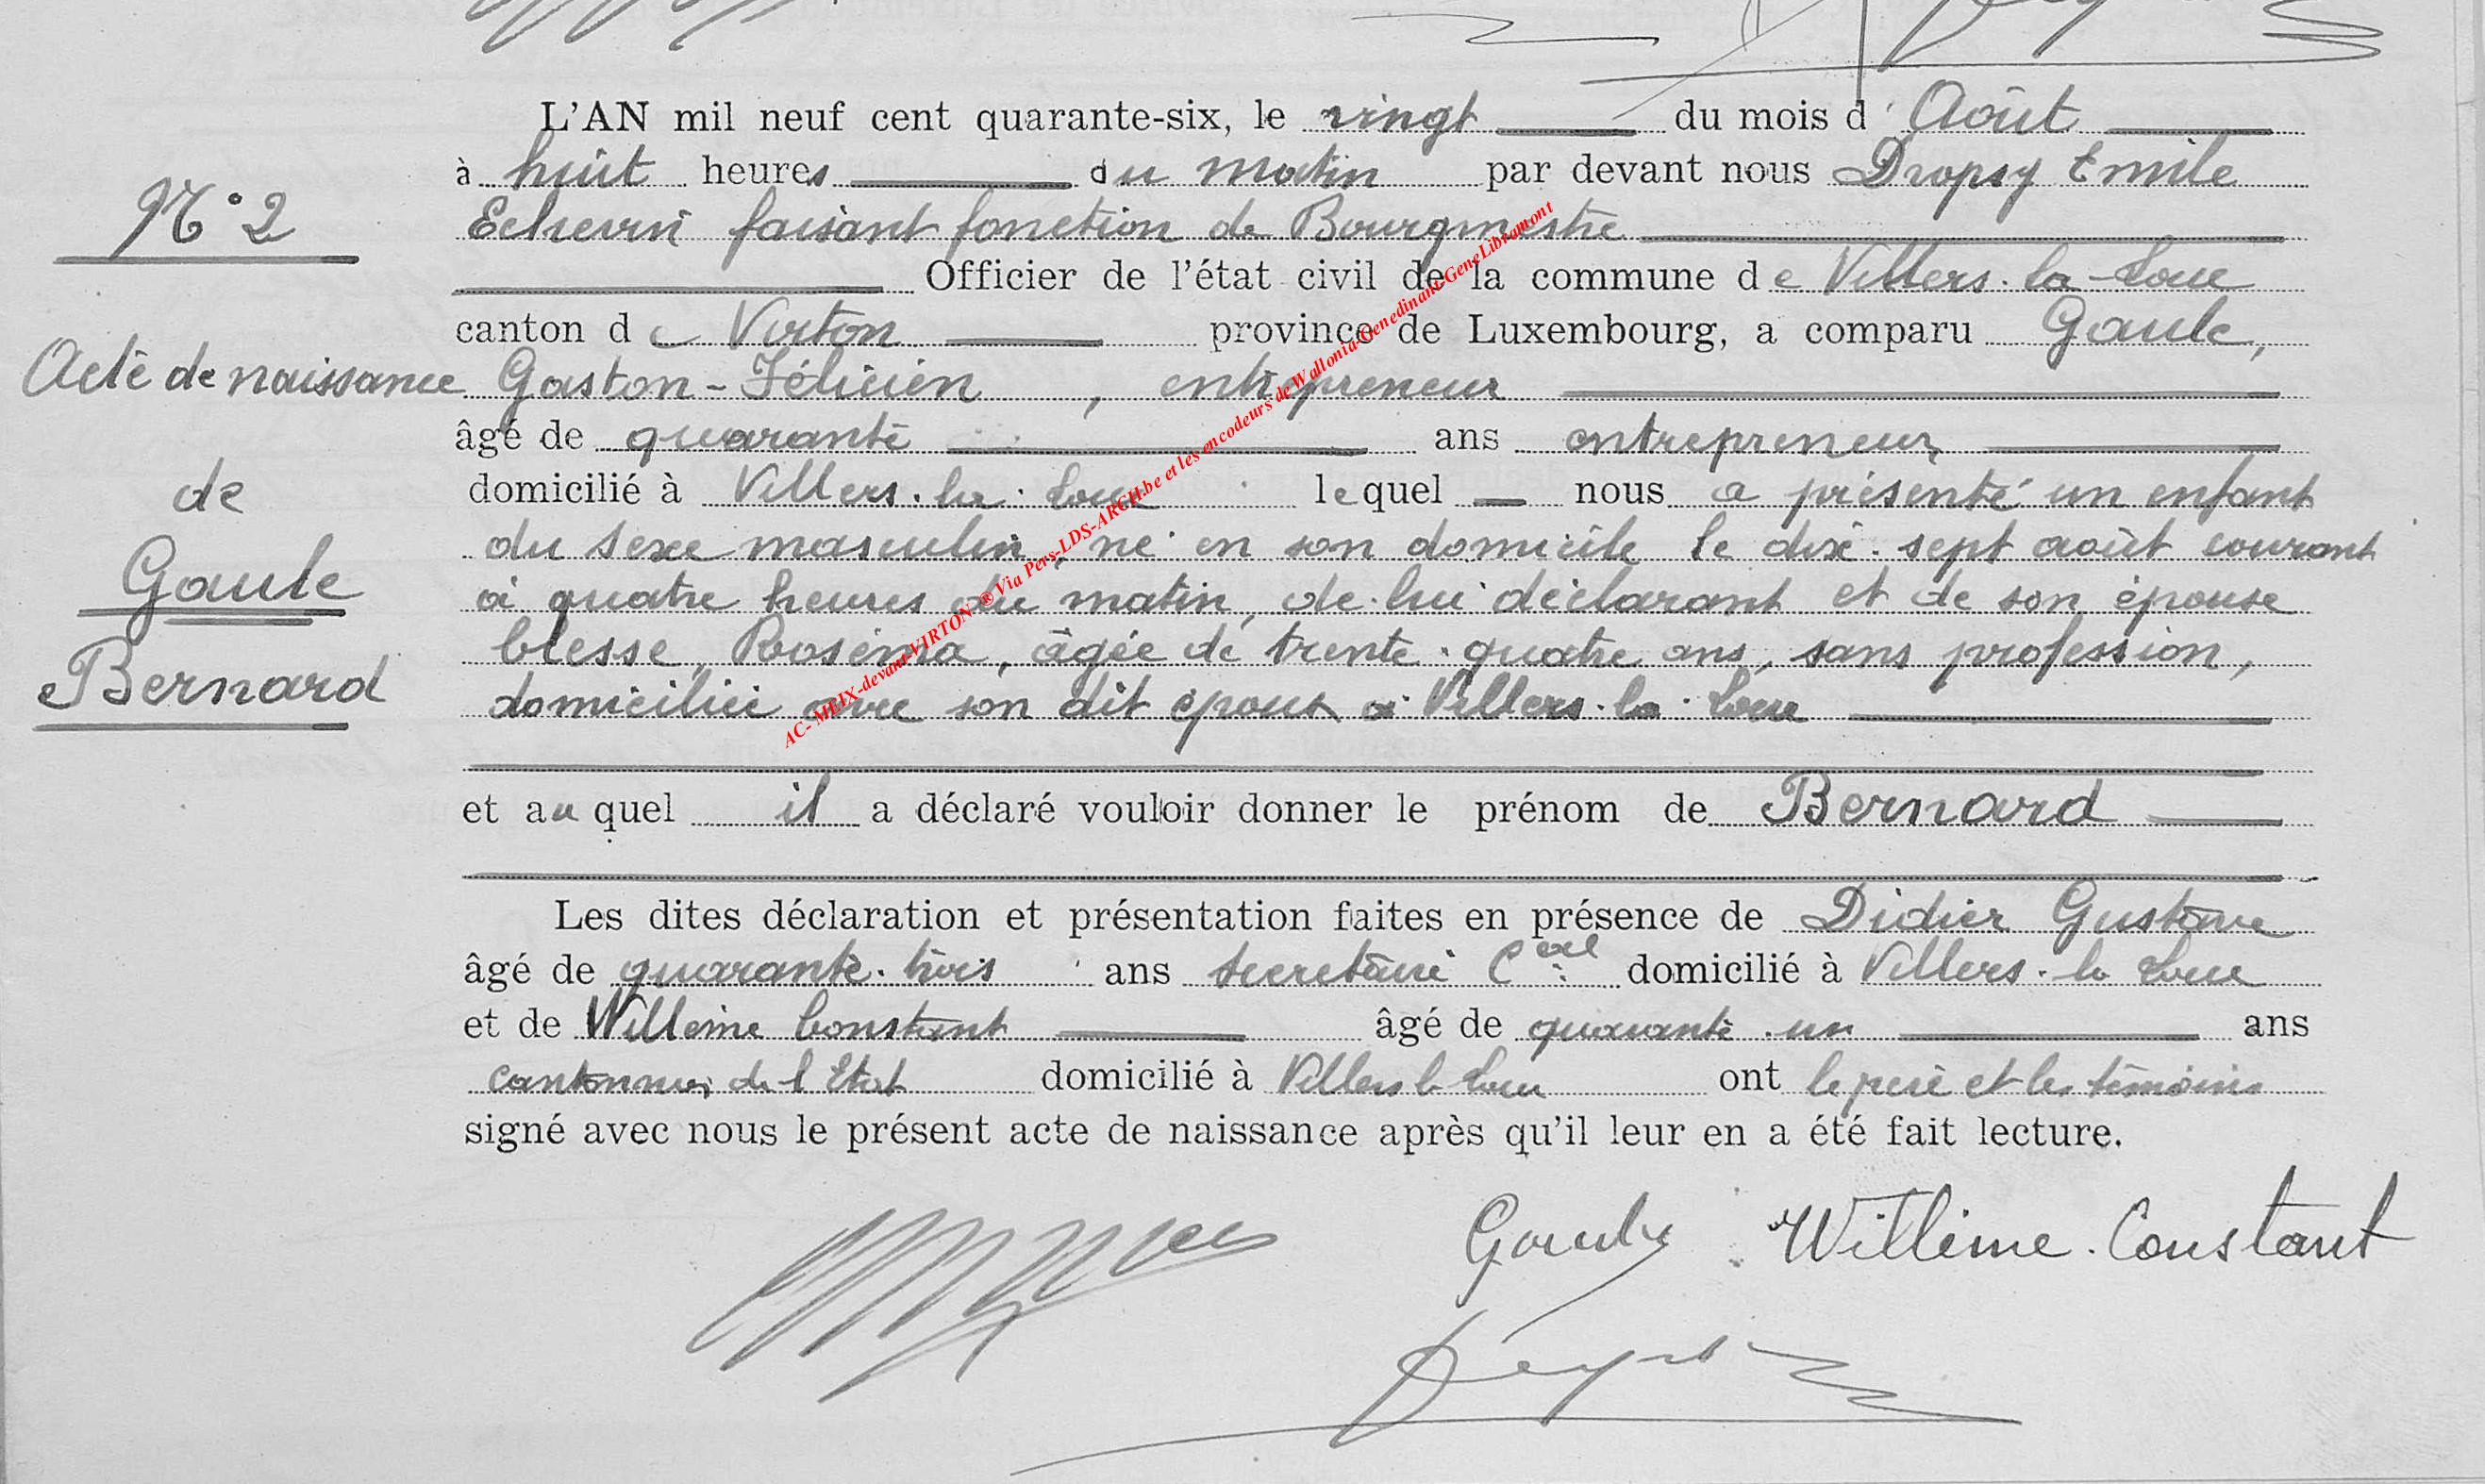 L'AN mil neuf cent quarante-six, le vingt du mois d' Août
à huit heures du matin par devant nous Dropsy Emile
N° 2
Echevin faisant fonction de Bourgmestre
Officier de l'état civil de la commune de Villers-la-Loue
canton de Virton province de Luxembourg, a comparu Gaule,
Acte de naissance
Gaston-Félicien, entrepreneur
âgé de quarante ans entrepreneur
de
domicilié à Villers-la-Loue lequel nous a présenté un enfant
du sexe masculin, né en son domicile le dix-sept août courant
Gaule
à quatre heures du matin, de lui déclarant et de son épouse
Bernard
Clesse, Roséma, âgée de trente-quatre ans, sans profession,
domiciliée avec son dit époux à Villers-la-Loue
et auquel il a déclaré vouloir donner le prénom de Bernard
Les dites déclaration et présentation faites en présence de Didier Gustave
âgé de quarante-trois ans secrétaire Cal domicilié à Villers-la Loue
et de Willeme Constant âgé de quarante-un ans
cantonnier de l'Etat domicilié à Villers-la-Loue ont le père et les témoins
signé avec nous le présent acte de naissance après qu'il leur en a été fait lecture.
Gaule Willeme. Constant
AC-MEIX-devant-VIRTON-®Via Pers-LDS-ARCH.be et les encodeurs de Wallonia-Genedinant-GeneLibramont